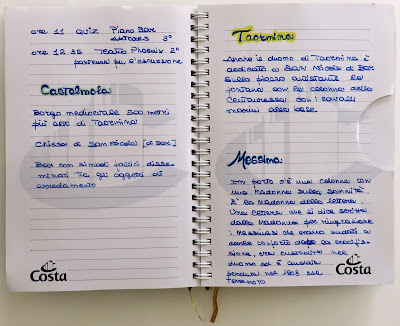 ore 11 QUIZ Piano Bar
3°
ore 12.35 Teatro Phoenix 2°
partenze per l'escursione
Castelmola
Borgo medioevale 500 metri
più alto di Taormina
Chiesa di San Nicolò [di Bari]
Bar con simboli fallici disse-
minati tra gli oggetti di
arredamento
Costa
Taormina
Anche il duomo di Taormina è
dedicato a San Nicola di Bari
sulla piazza antistante la
fontana con la colonna della
Centauressa con i cavalli
marini alla base.
Messina
In porto c'è una colonna con
una Madonna sulla sommità.
È la Madonna della lettera.
Una lettera che si dice scritta
dalla Madonna per ringraziare
i Messinesi che erano andati a
darle conforto dopo la crocifis-
sione, era custodita nel
duomo ed è andata
perduta nel 1908 nel
terremoto
Costa